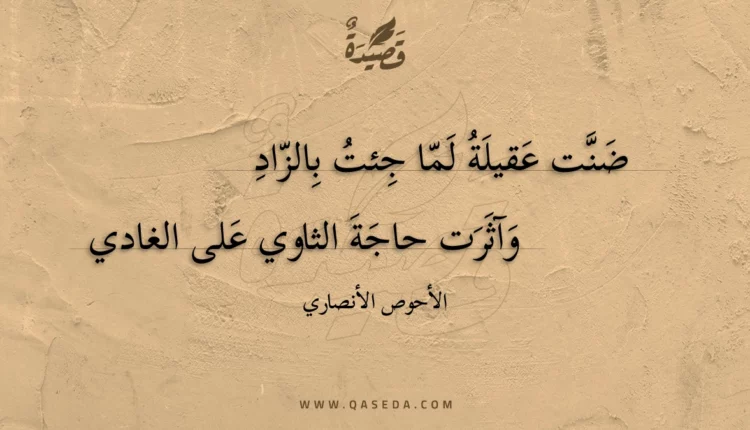 قَصِيْدَةٌ
ضَنَّت عَقيلَةُ لَمّا جِئتُ بِالزّادِ
وَآثَرَت حاجَةَ الثاوي عَلى الغادي
الأحوص الأنصاري
WWW.QASEDA.COM